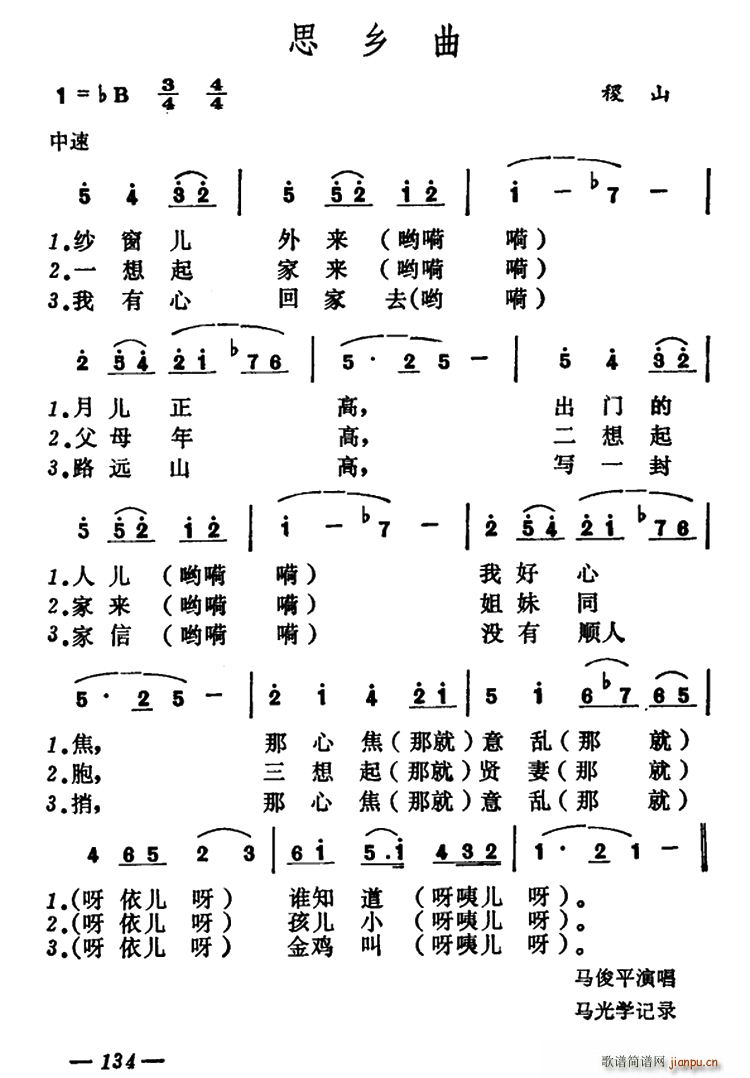 思乡曲
1=♭B 3/4 4/4 稷山
中速
5 4 3 2 | 5 5 2 1 2 | 1 - ♭7 - |
1.纱窗儿 外来(哟嗬 嗬)
2.一想起 家来(哟嗬 嗬)
3.我有心 回家去(哟 嗬)
2 5 4 2 1 ♭7 6 | 5 · 2 5 - | 5 4 3 2 |
1.月儿正 高, 出门的
2.父母年 高, 二想起
3.路远山 高, 写一封
5 5 2 1 2 | 1 - ♭7 - | 2 5 4 2 1 ♭7 6 |
1.人儿(哟嗬 嗬) 我好心
2.家来(哟嗬 嗬) 姐妹同
3.家信(哟嗬 嗬) 没有顺人
5 · 2 5 - | 2 1 4 2 1 | 5 1 6 ♭7 6 5 |
1.焦, 那心焦(那就)意乱(那 就)
2.胞, 三想起(那就)贤妻(那 就)
3.捎, 那心焦(那就)意乱(那 就)
4 6 5 2 3 | 6 1 5 . 1 4 3 2 | 1 · 2 1 - ‖
1.(呀依儿呀) 谁知道(呀咦儿呀)。
2.(呀依儿呀) 孩儿小(呀咦儿呀)。
3.(呀依儿呀) 金鸡叫(呀咦儿呀)。
马俊平演唱
马光学记录
— 134 —
歌谱简谱网
jianpu.cn